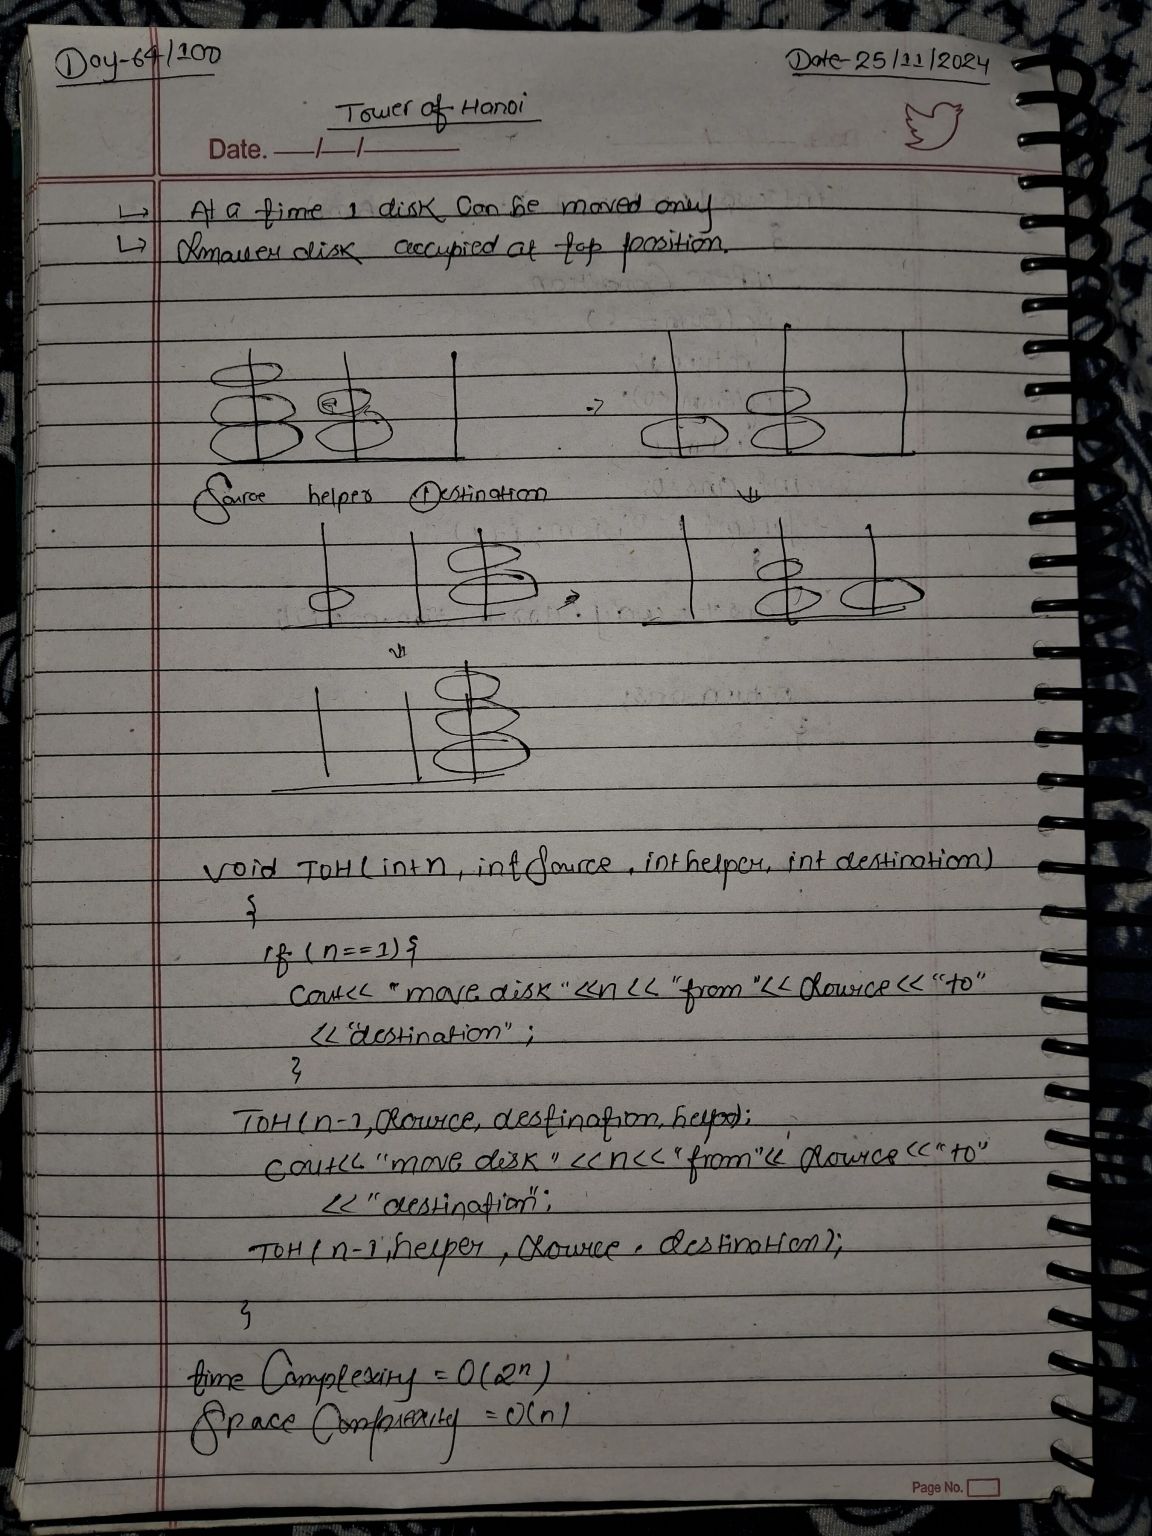 Day-64/100
Date-25/11/2024
Tower of Hanoi
Date. —/—/———
↳ At a time 1 disk Can be moved only
↳ Smaller disk occupied at top position.
Source helper Destination
void TOH(int n, int Source, int helper, int destination)
{
if (n==1){
cout<< "move disk "<<n<< "from "<< Source<< "to"
<<"destination";
}
TOH(n-1, Source, destination, helper);
cout<< "move disk "<<n<< "from"<< Source<< "to"
<< "destination";
TOH(n-1, helper, Source, destination);
}
time Complexity = O(2ⁿ)
Space Complexity = O(n)
Page No.